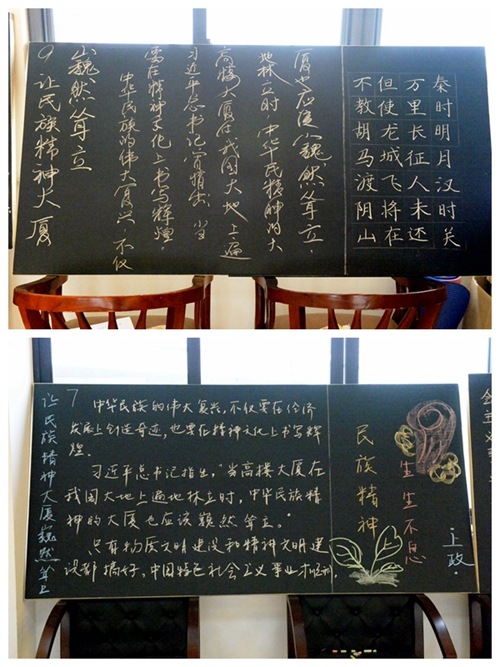 9 让民族精神大厦
巍然耸立
中华民族的伟大复兴,不仅
要在精神文化上书写辉煌.
习近平总书记曾指出,当
高楼大厦在我国大地上遍
地林立时,中华民族精神的大
厦也应该巍然耸立.
秦时明月汉时关
万里长征人未还
但使龙城飞将在
不教胡马渡阴山
让民族精神大厦巍然耸立
7
中华民族的伟大复兴,不仅要在经济
发展上创造奇迹,也要在精神文化上书写辉
煌.
习近平总书记指出,"当高楼大厦在
我国大地上遍地林立时,中华民族精
神的大厦也应该巍然耸立."
只有物质文明建设和精神文明建
设都搞好,中国特色社会主义事业才能顺
民族精神
生生不息
王政.